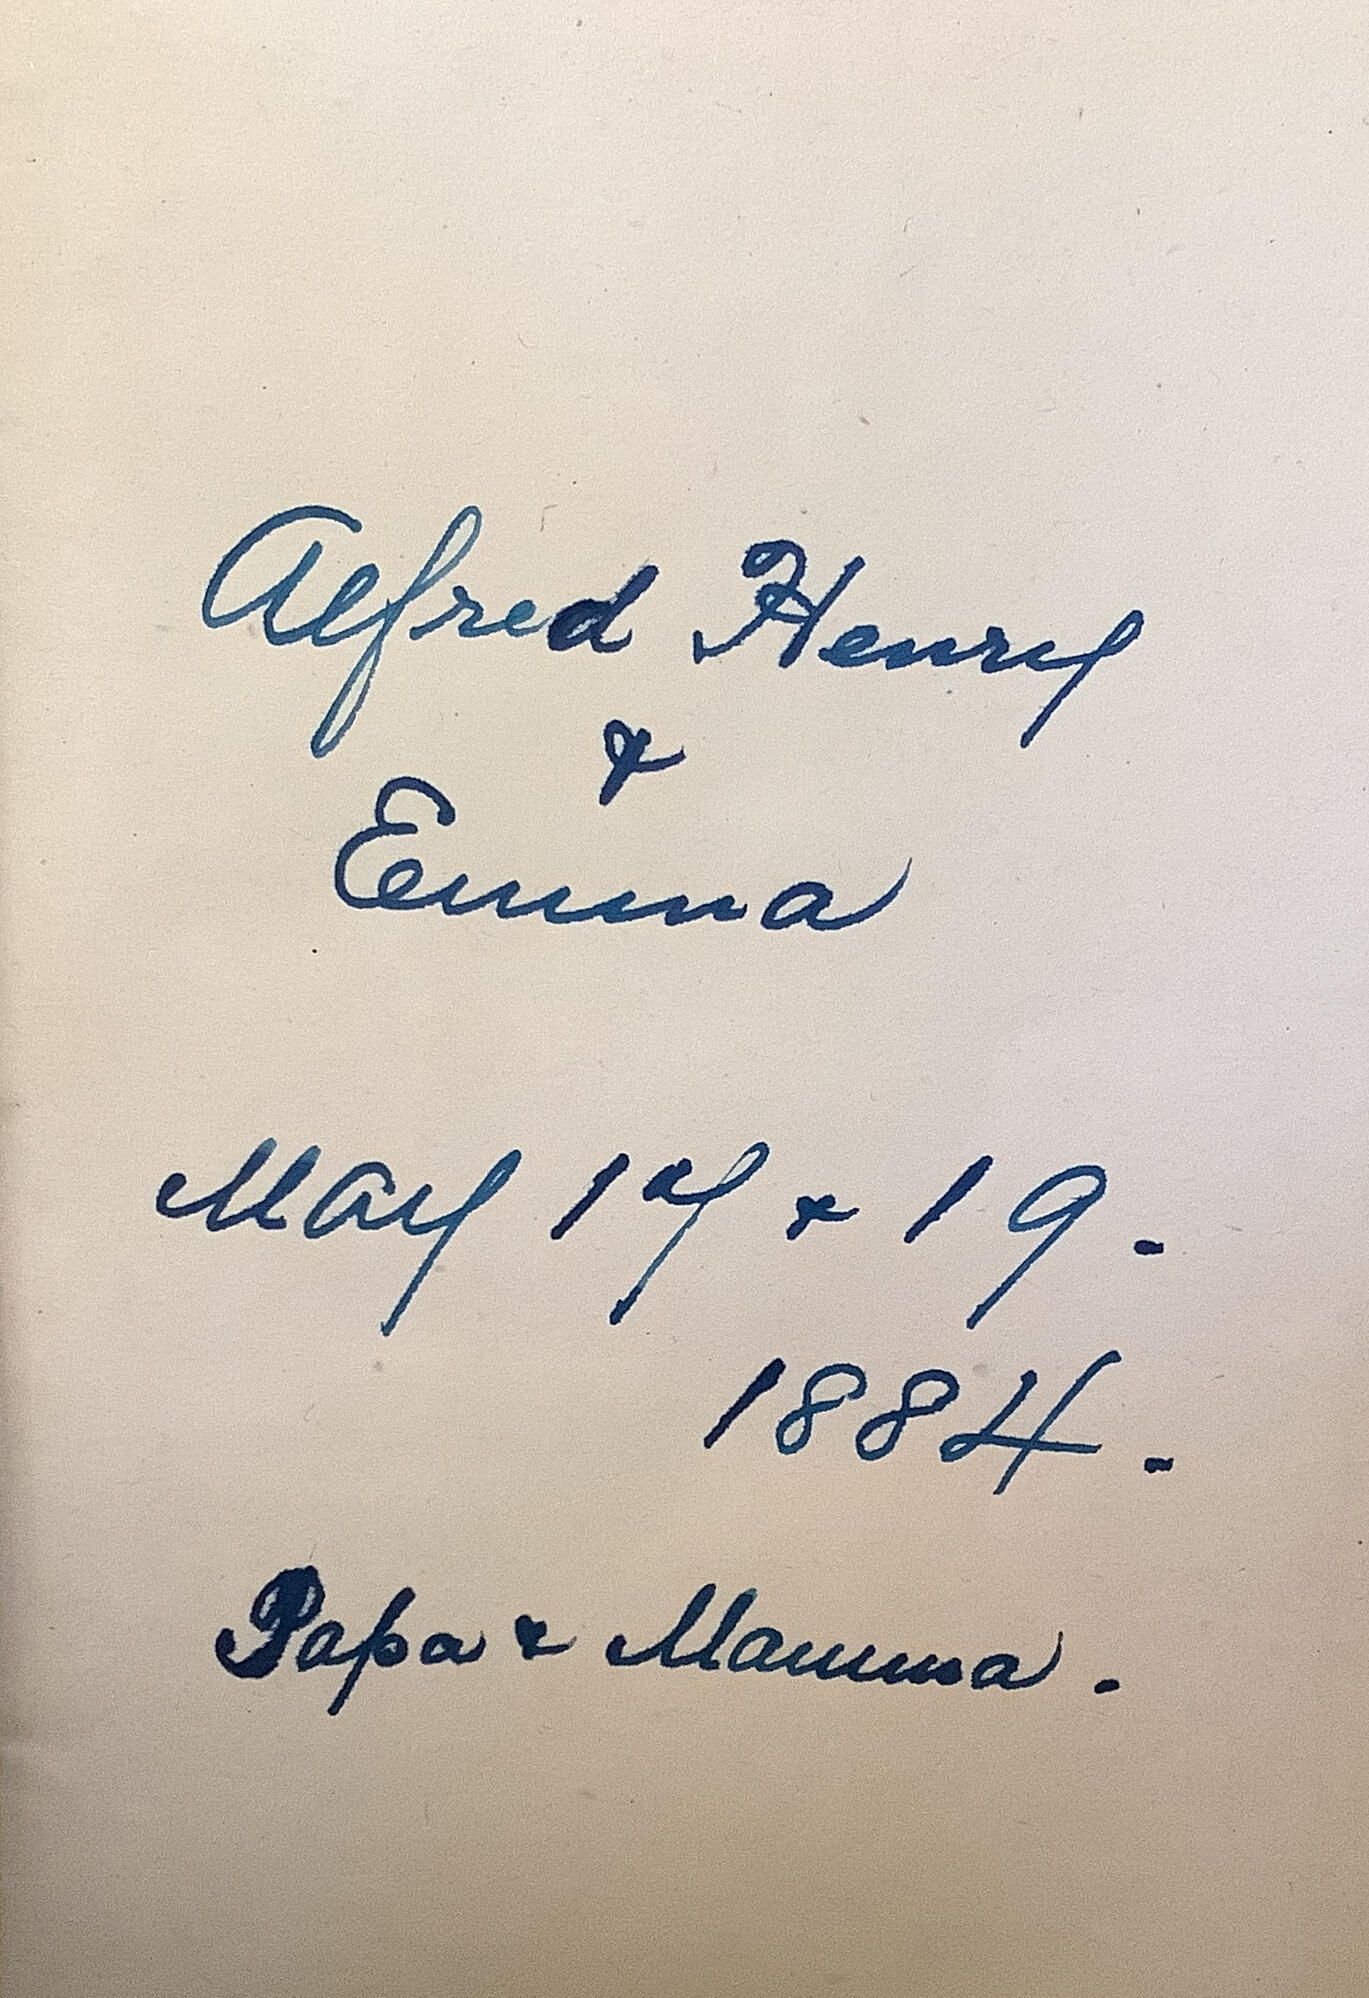 Alfred Henry
&
Emma
May 17 & 19.
1884.
Papa & Mamma.